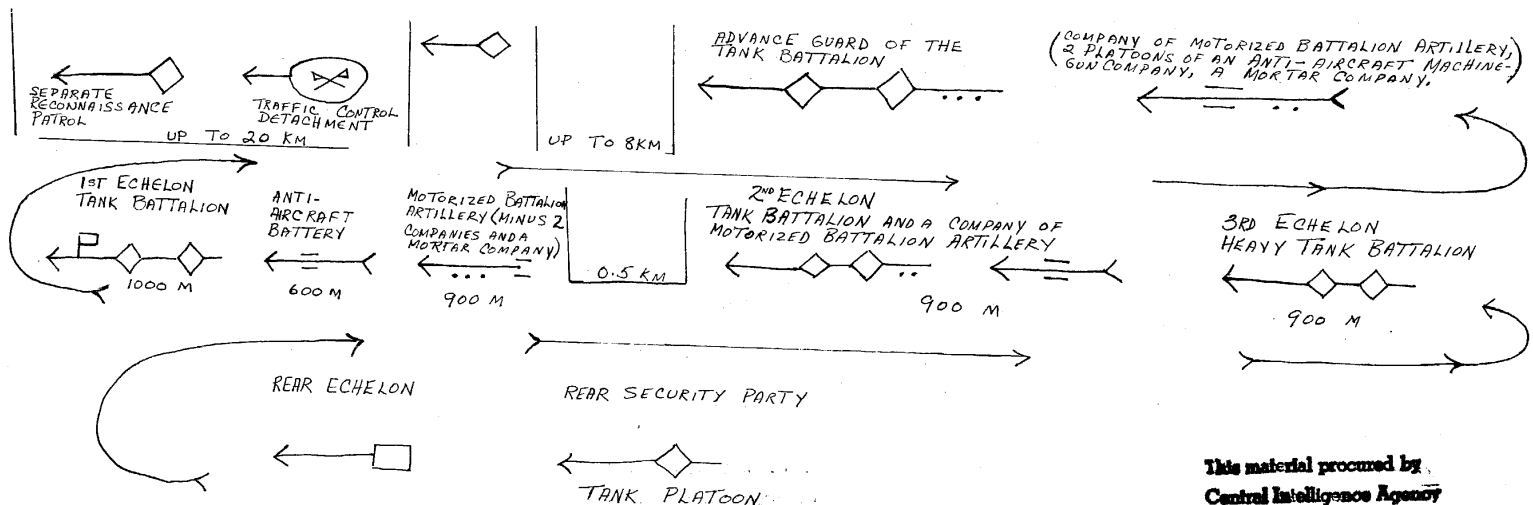 SEPARATE
RECONNAISSANCE
PATROL
TRAFFIC CONTROL
DETACHMENT
UP TO 20 KM
UP TO 8KM
ADVANCE GUARD OF THE
TANK BATTALION
(COMPANY OF MOTORIZED BATTALION ARTILLERY,
2 PLATOONS OF AN ANTI-AIRCRAFT MACHINE-
GUN COMPANY, A MORTAR COMPANY.)
1ST ECHELON
TANK BATTALION
1000 M
ANTI-
AIRCRAFT
BATTERY
600 M
MOTORIZED BATTALION
ARTILLERY (MINUS 2
COMPANIES AND A
MORTAR COMPANY)
900 M
0.5 KM
2ND ECHELON
TANK BATTALION AND A COMPANY OF
MOTORIZED BATTALION ARTILLERY
900 M
3RD ECHELON
HEAVY TANK BATTALION
900 M
REAR ECHELON
REAR SECURITY PARTY
TANK PLATOON
This material procured by
Central Intelligence Agency